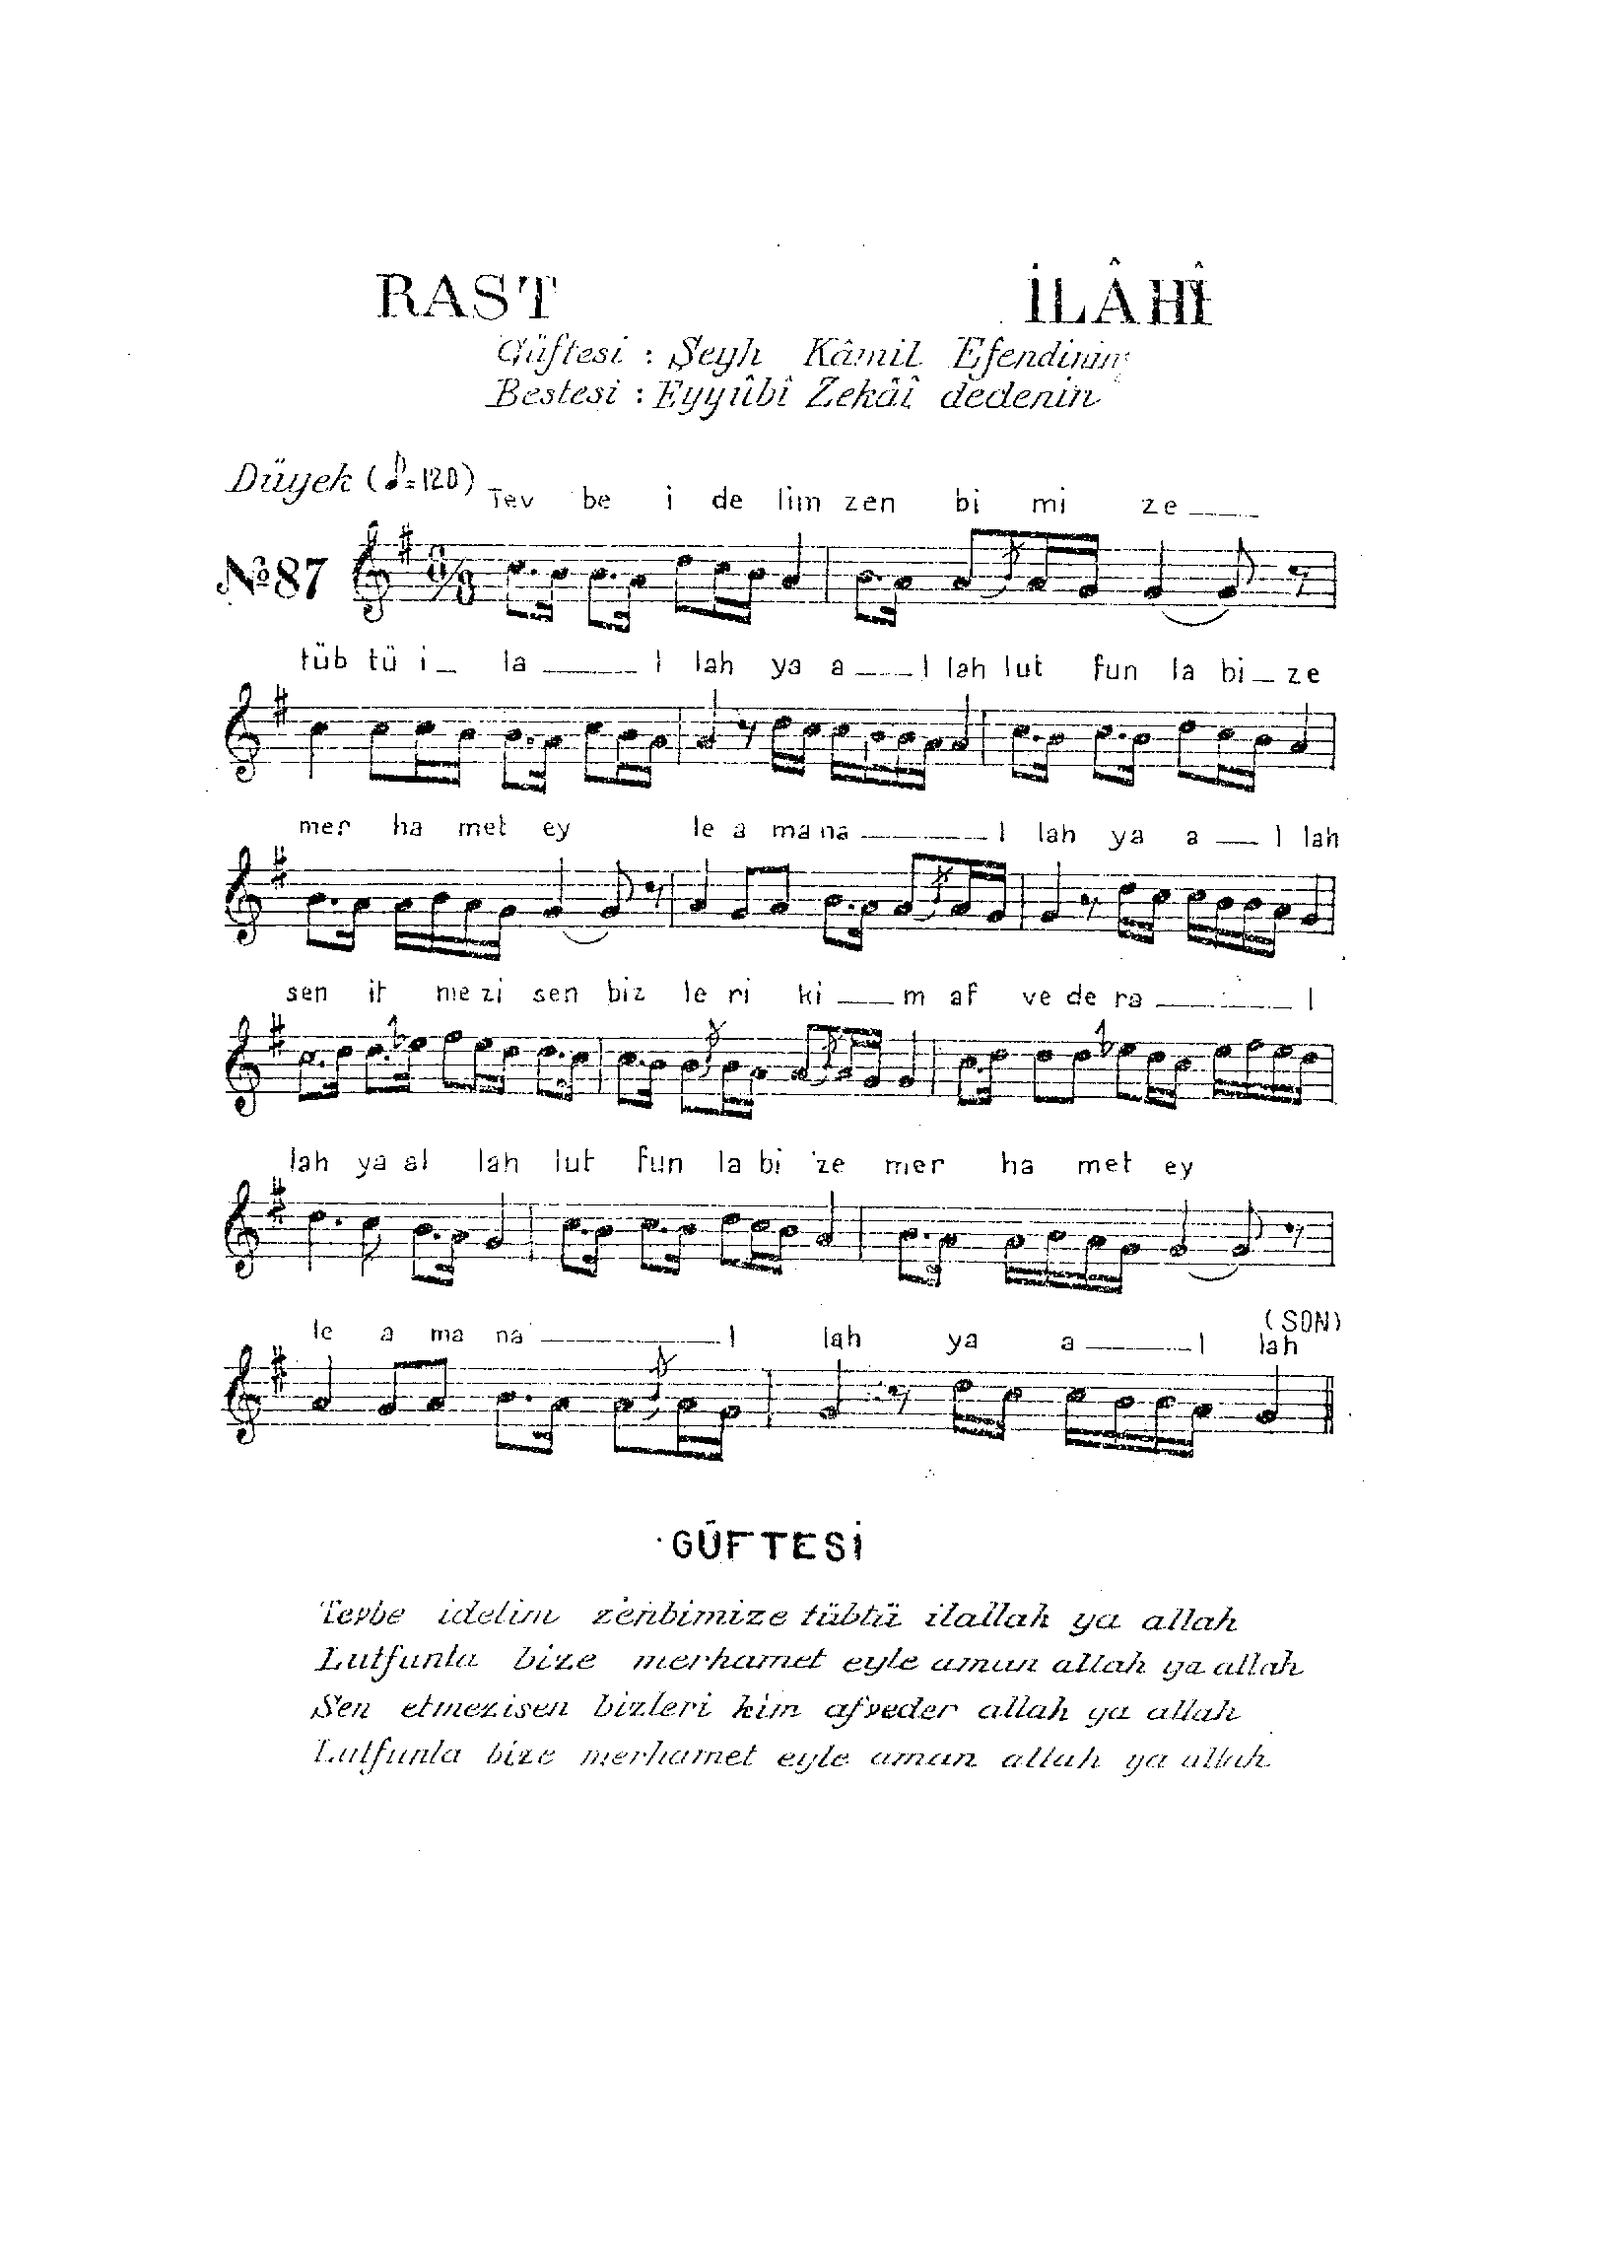 RAST İLÂHÎ
Güftesi : Şeyh Kâmil Efendinin
Bestesi : Eyyûbî Zekâî dedenin
Düyek (♪=120)
Tev be i de lim zen bi mi ze
№ 87
8/8
tüb tü i la l lah ya a l lah lut fun la bi ze
mer ha met ey le a ma na l lah ya a l lah
sen it me zi sen biz le ri ki m af ve de ra l
lah ya al lah lut fun la bi ze mer ha met ey
(SON)
le a ma na l lah ya a l lah
GÜFTESİ
Tevbe idelim zenbimize tübtü ilallah ya allah
Lutfunla bize merhamet eyle aman allah ya allah
Sen etmezisen bizleri kim afveder allah ya allah
Lutfunla bize merhamet eyle aman allah ya allah